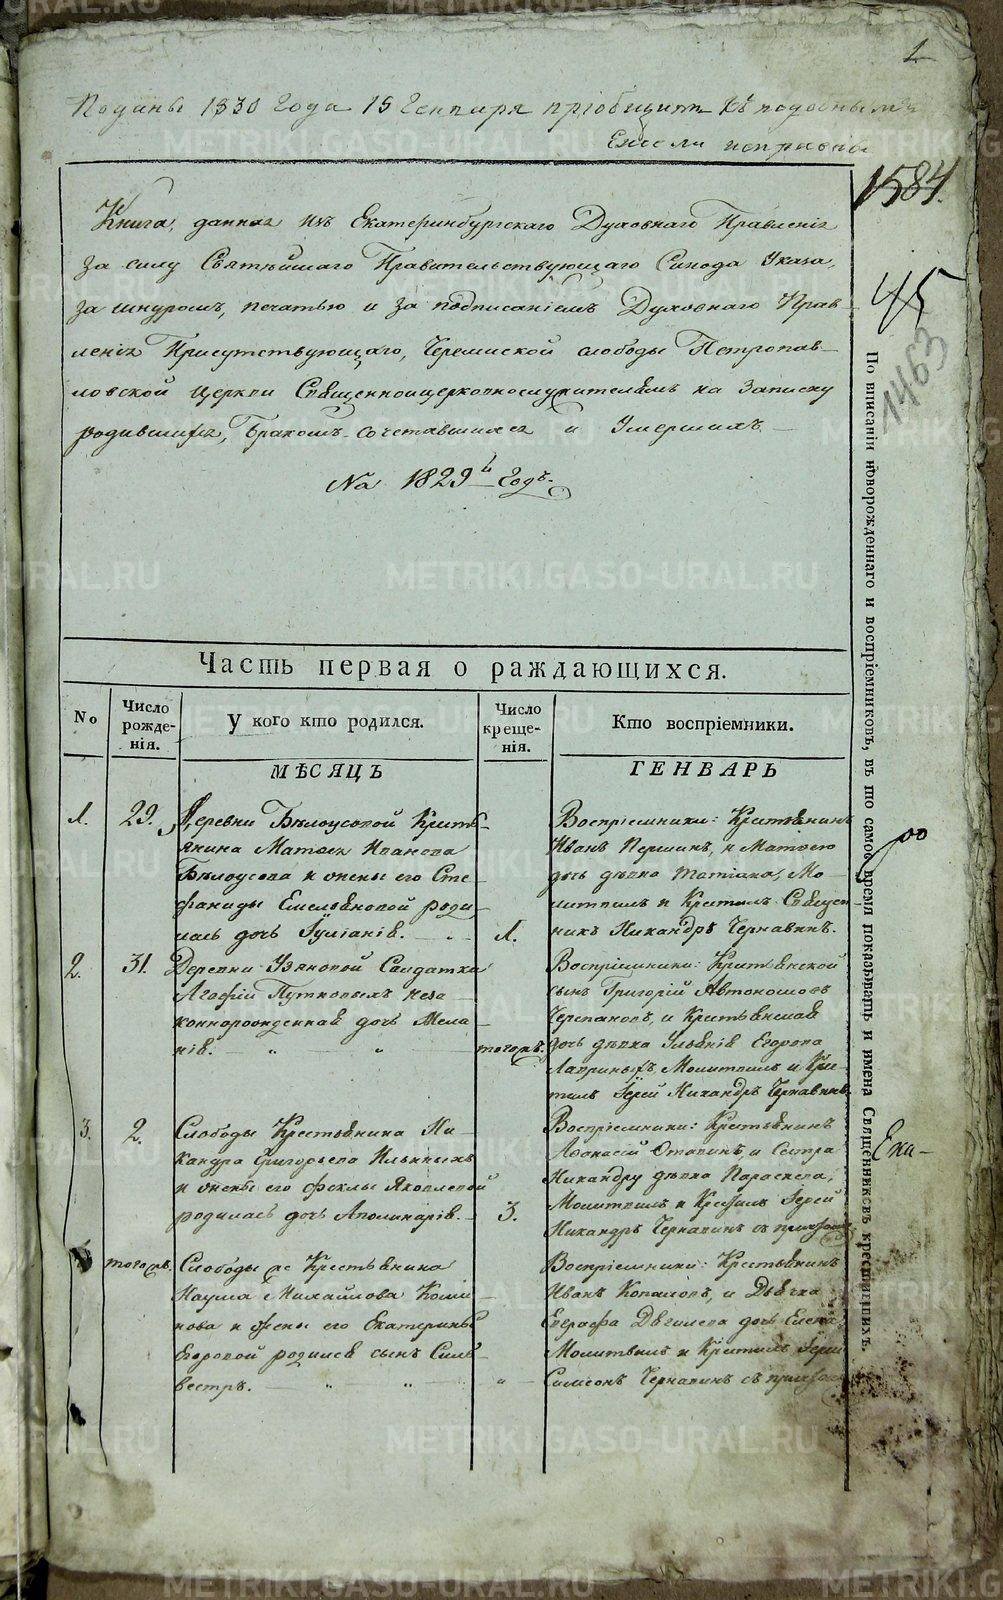 1
Поданы 1830 Года 15 Генваря пріобщить къ подобнымъ
Ежели исправна
1584.
45
1463
Книга, данная изъ Екатеринбургскаго Духовнаго Правленія
за силу Святѣйшаго Правительствующаго Синода Указа,
за шнуромъ, печатью и за подписаніемъ Духовнаго Прав-
ленія Присутствующаго, Черемиской слободы Петропав-
ловской Церкви Священноицерковнослужителямъ на Записку
родившихся, Бракомъ сочетавшихся и Умершихъ —
На 1829й Годъ.
Часть первая о раждающихся.
No
Число рожде-нія.
У кого кто родился.
Число креще-нія.
Кто воспріемники.
МѢСЯЦЪ ГЕНВАРЬ
1. 29. Деревни Бѣлоусовой Кресть-
янина Матвея Иванова
Бѣлоусова и жены его Сте-
фаниды Емельяновой роди-
лась дочь Іуліанія. 1.
Воспріемники: Крестьянинъ
Иванъ Першинъ, и Матвею
дочь дѣвка Татіана, Мо-
литвилъ и Крестилъ Священ
никъ Никандръ Чернавинъ.
2. 31. Деревни Узяновой Салдатки
Агафіи Путковыхъ неза-
коннорожденная дочь Мела-
нія. — " — " — тогожъ.
Воспріемники: Крестьянской
сынъ Григорій Автономовъ
Черепановъ, и Крестьянская
дочь дѣвка Ульянія Егорова
Лавриныхъ Молитвилъ и Кре-
стилъ Іерей Никандръ Чернавинъ
3. 2. Слободы Крестьянина Ни-
кандра Григорьева Ильиныхъ
и жены его Феклы Яковлевой
родилась дочь Аполинарія. 3.
Воспріемники: Крестьянинъ
Афонасій Отавинъ, и Сестра
Никандру дѣвка Параскева,
Молитвилъ и Крестилъ Іерей
Никандръ Чернавинъ съ
тогожъ. Слободы же Крестьянина
Наума Михайлова Коми-
нова и жены его Екатерины
Егоровой родился сынъ Силь-
вестръ. — " — " — "
Воспріемники: Крестьянинъ
Иванъ и Дѣвка
Евграфа дочь Елена,
Молитвилъ и Крестилъ Іерей
Симеонъ Чернавинъ съ
По вписаніи новорожденнаго и воспріемниковъ, въ то самое время показывать и имена Священниковъ крестившихъ.
Ека-
METRIKI.GASO-URAL.RU